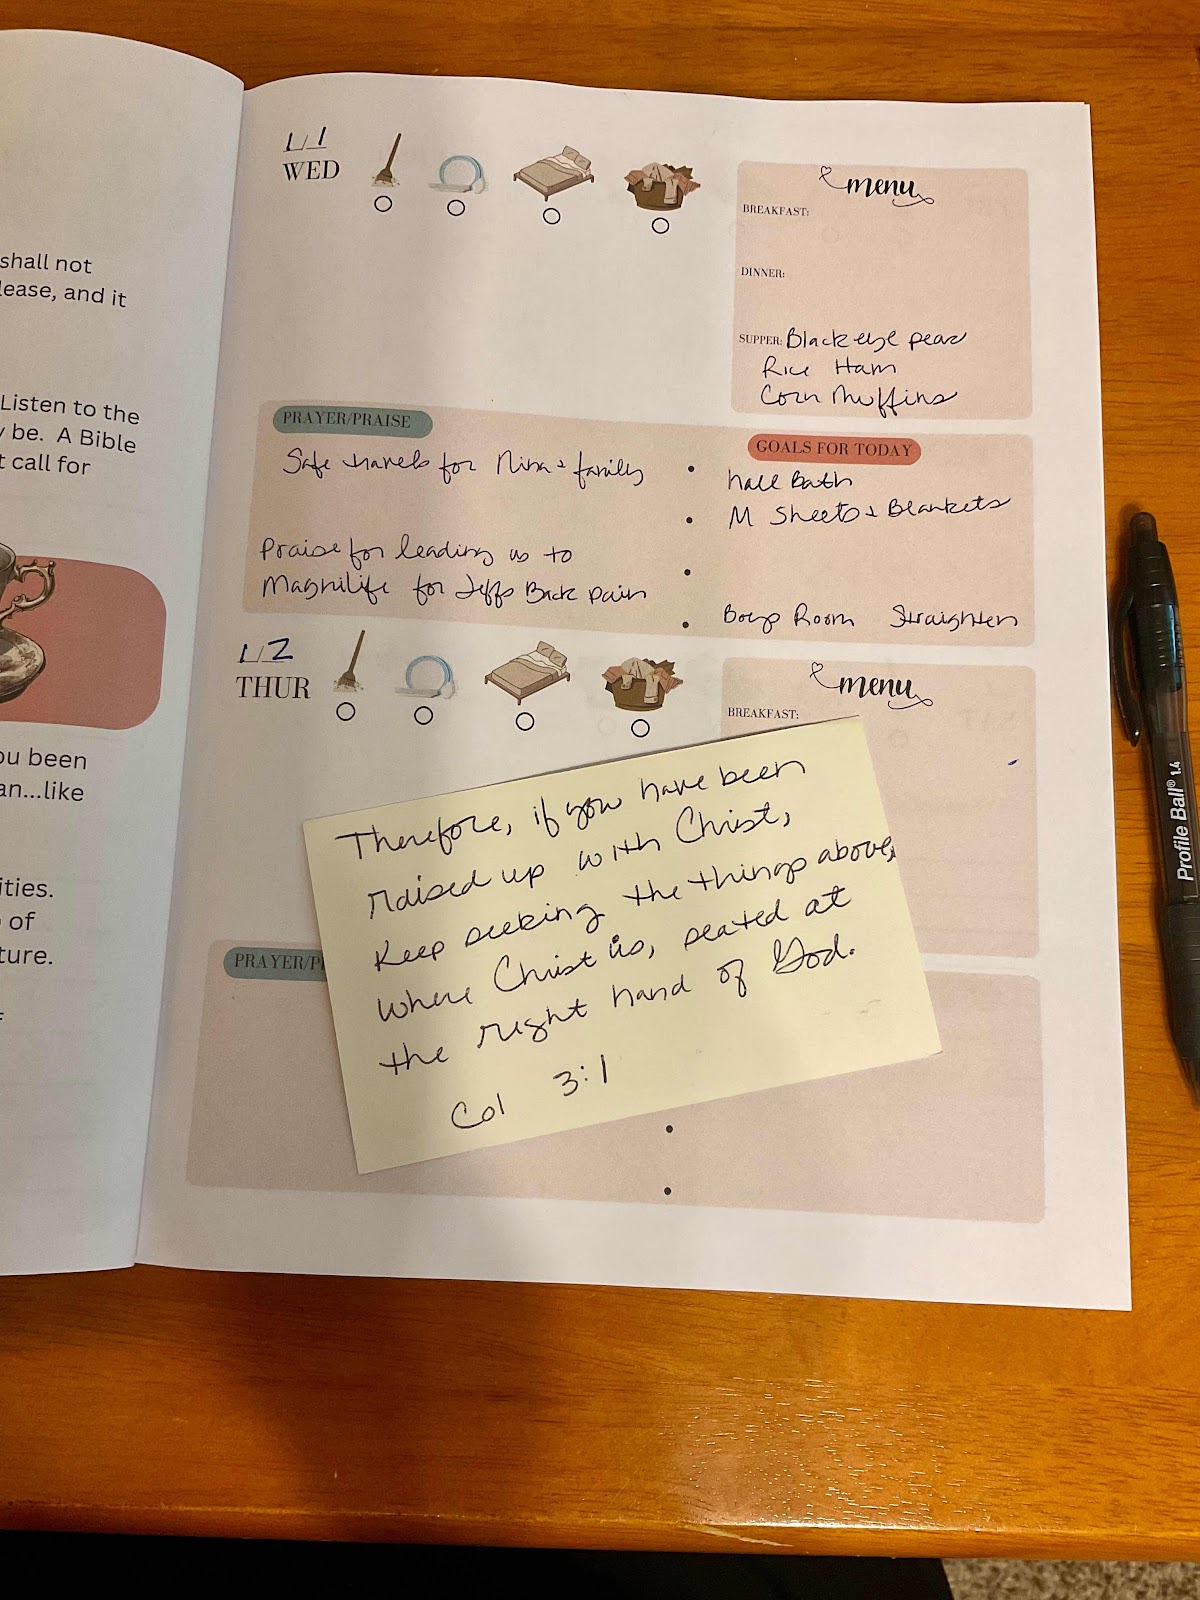 shall not
lease, and it
Listen to the
y be. A Bible
t call for
ou been
an...like
ities.
of
ture.
1/1
WED
menu
BREAKFAST:
DINNER:
SUPPER: Black eye peas
Rice Ham
Corn Muffins
PRAYER/PRAISE
Safe travels for Nina & family
Praise for leading us to
Magnilife for Jeffs Back pain
GOALS FOR TODAY
hall Bath
M Sheets & Blankets
Boys Room Straighten
1/2
THUR
menu
BREAKFAST:
PRAYER/P
Therefore, if you have been
raised up with Christ,
Keep seeking the things above,
where Christ is, seated at
the right hand of God.
Col 3:1
Profile Ball® 1.4